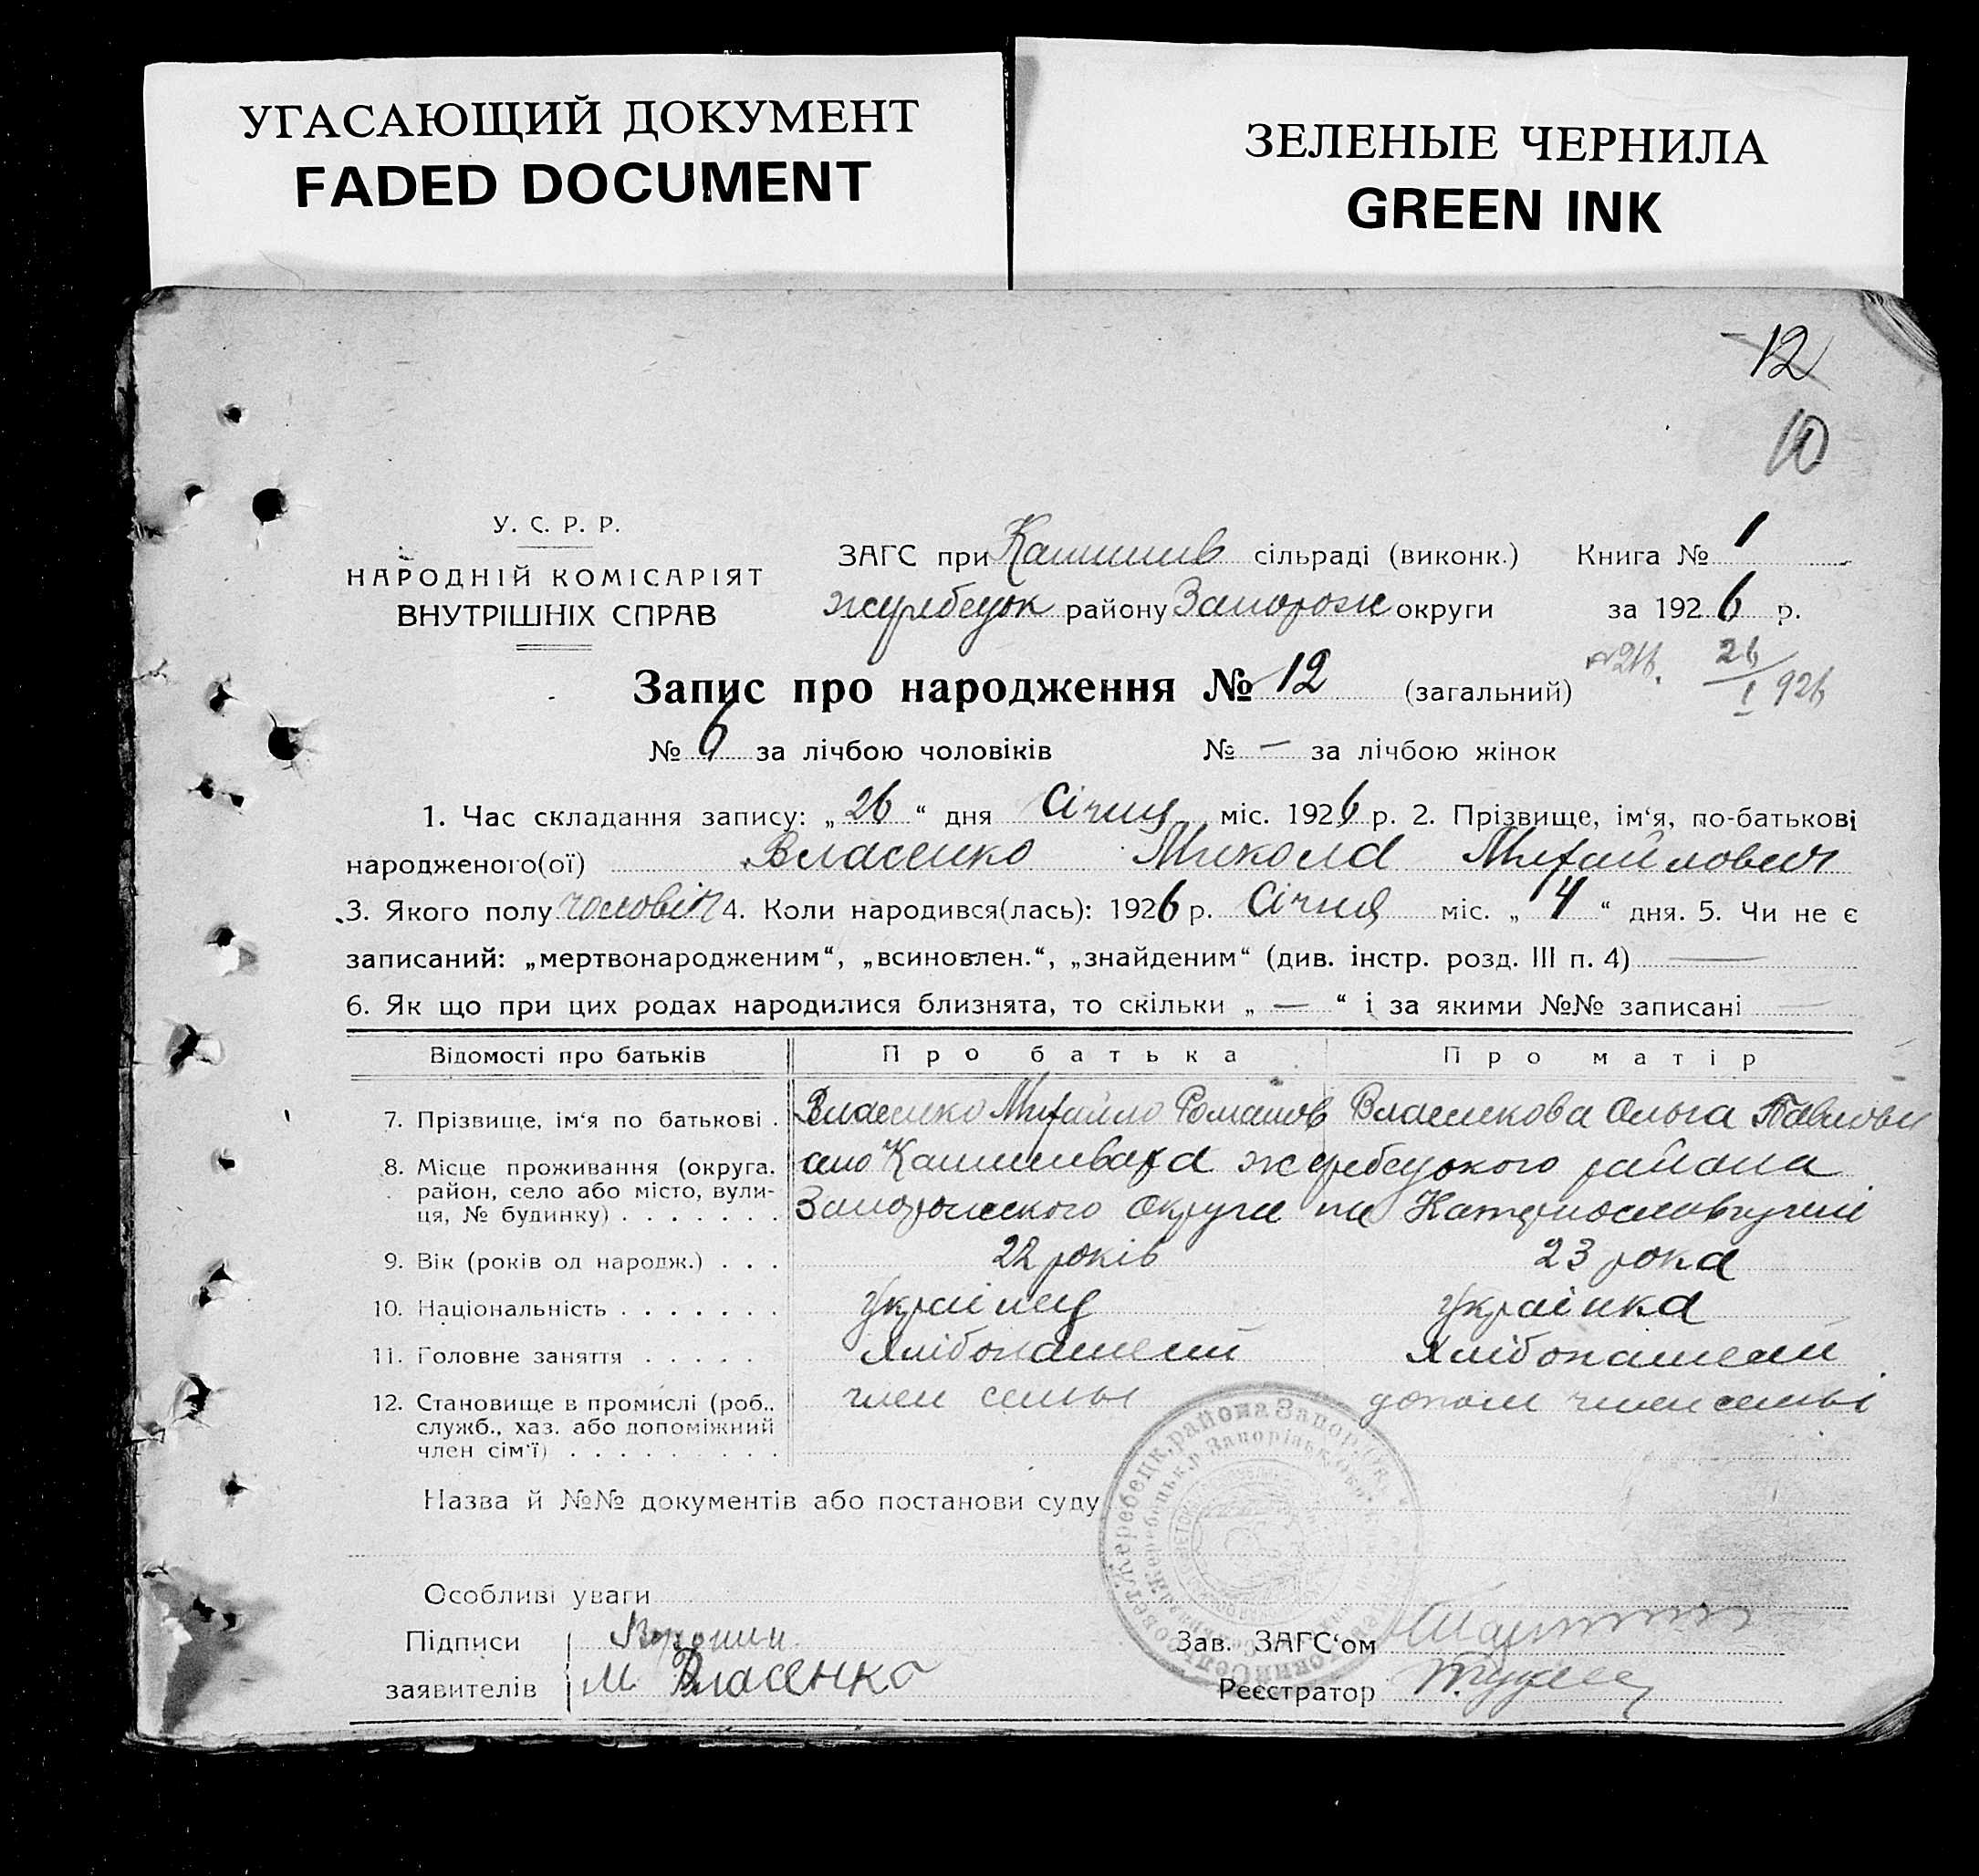 УГАСАЮЩИЙ ДОКУМЕНТ
FADED DOCUMENT
ЗЕЛЕНЫЕ ЧЕРНИЛА
GREEN INK
12
10
У. С. Р. Р.
НАРОДНІЙ КОМІСАРІЯТ
ВНУТРІШНІХ СПРАВ
ЗАГС при сільраді (виконк.) Книга № 1
району Запорож округи за 1926 р.
26/1 926
Запис про народження № 12 (загальний)
№ 6 за лічбою чоловіків № — за лічбою жінок
1. Час складання запису: „ 26 “ дня Січня міс. 1926 р. 2. Прізвище, ім‘я, по-батькові
народженого(ої) Власенко Микола Михайлович
3. Якого полу чоловіч 4. Коли народився(лась): 1926 р. Січня міс. „ 4 “ дня. 5. Чи не є
записаний: „мертвонародженим“, „всиновлен.“, „знайденим“ (див. інстр. розд. III п. 4) —
6. Як що при цих родах народилися близнята, то скільки „ — “ і за якими №№ записані —
Відомості про батьків Про батька Про матір
7. Прізвище, ім‘я по батькові . Власенко Михайло Романов Власенкова Ольга Павловн
8. Місце проживання (округа. село жеребецького района
район, село або місто, вули-
ця, № будинку) . . . . . . . Запорожского Округи на Катеринославщині
9. Вік (років од народж.) . . . 22 років 23 рока
10. Національність . . . . . . . українец українка
11. Головне заняття . . . . . Хлібопашест Хлібопашест
12. Становище в промислі (роб., член семьі допом член семьі
служб., хаз. або допоміжний
член сім‘ї) . . . . . . . . .
Назва й №№ документів або постанови суду
Особливі уваги
Підписи
заявителів М Власенко
Зав. ЗАГС‘ом
Реєстратор